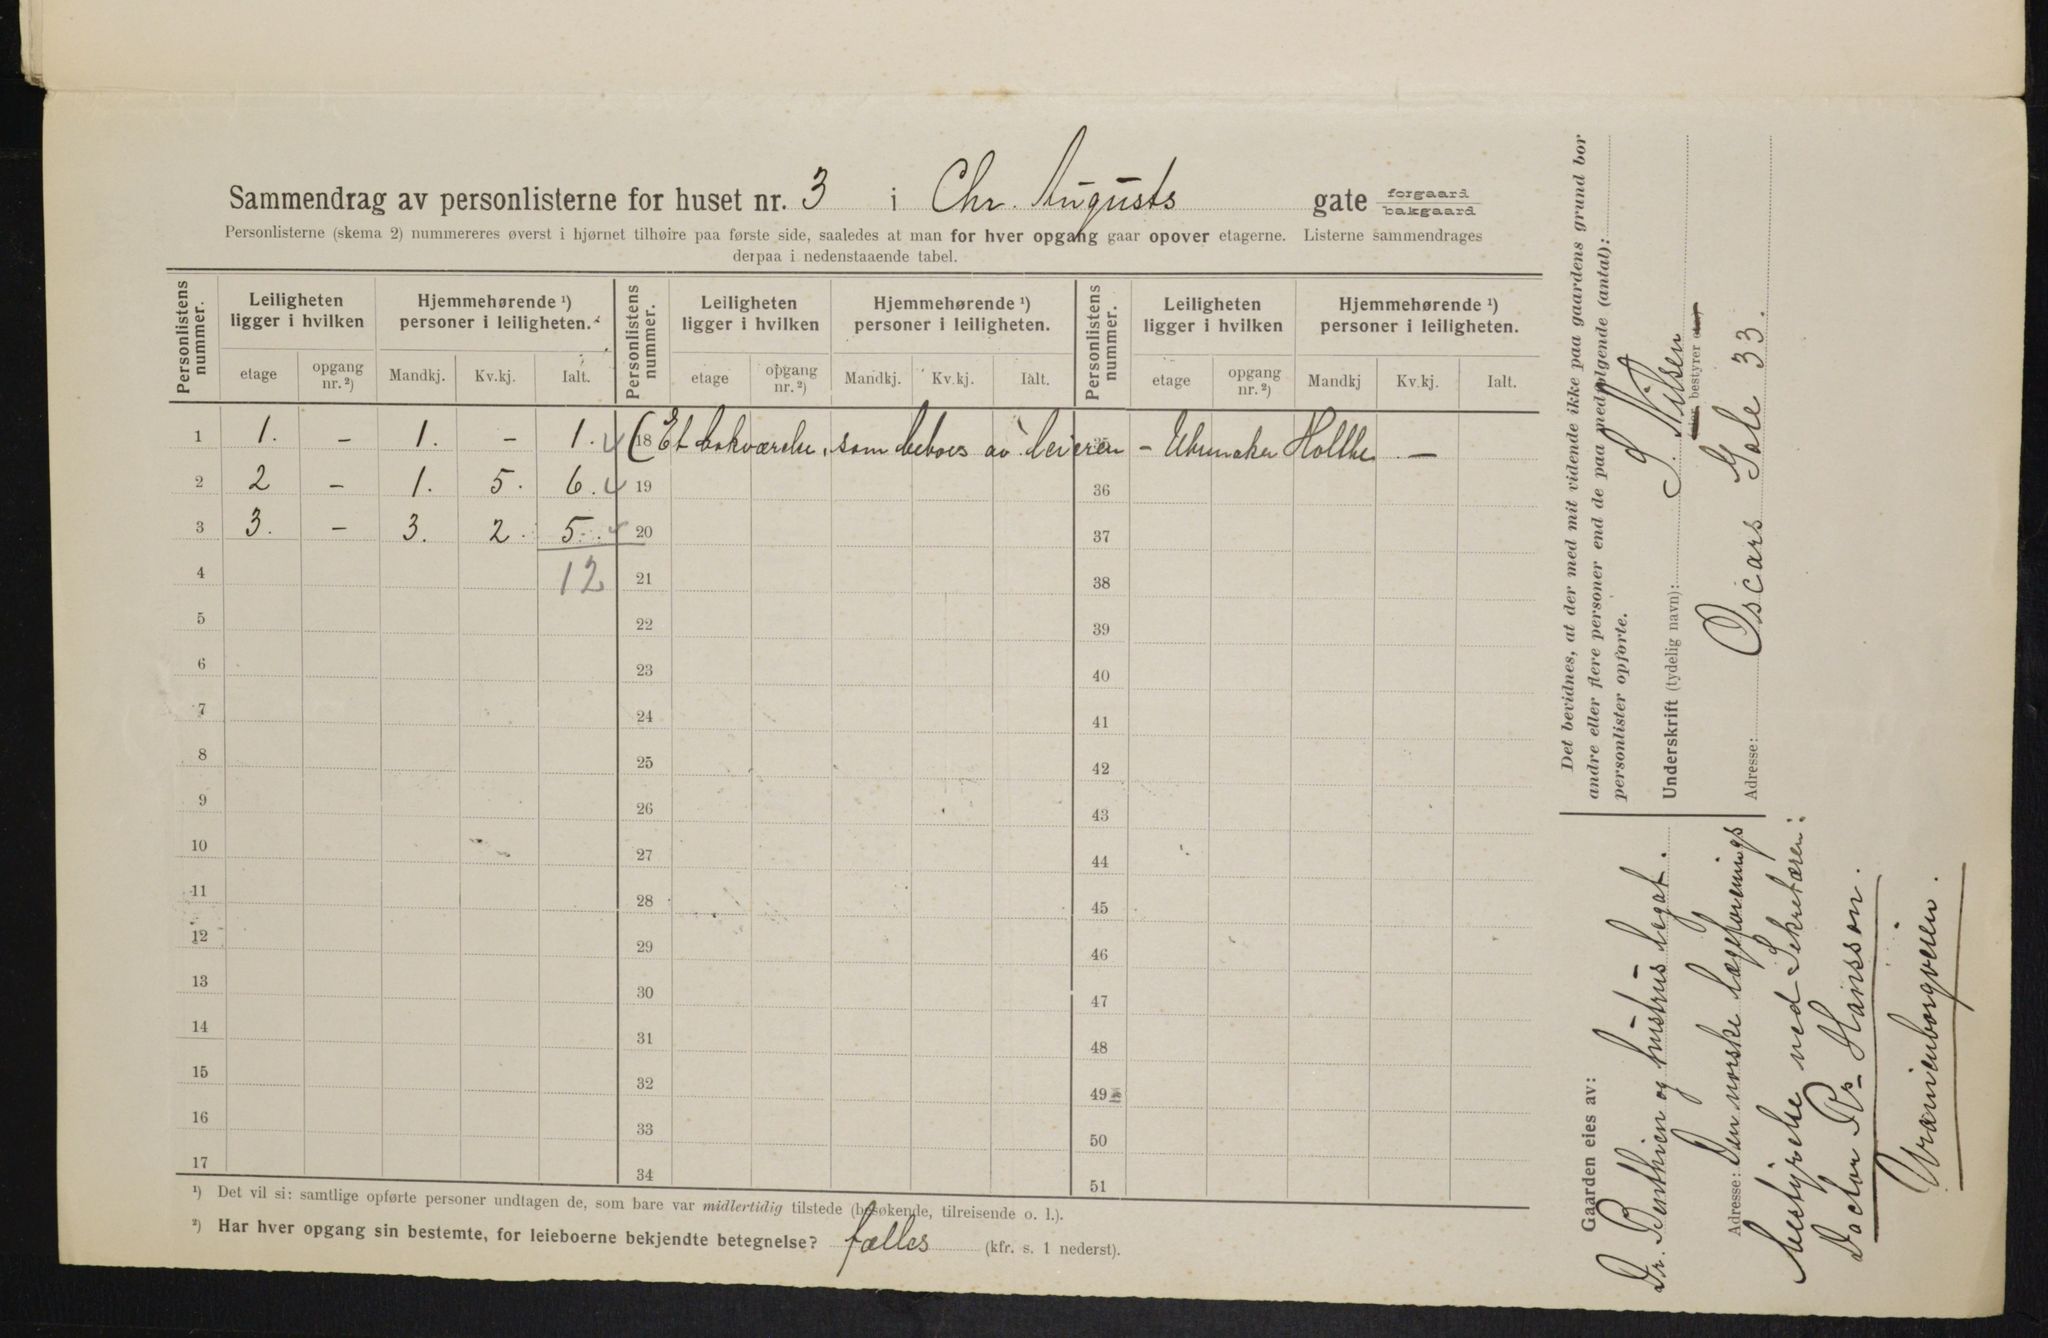 Sammendrag av personlisterne for huset nr. 3 i Chr. Augusts gate forgaard bakgaard
Personlisterne (skema 2) nummereres øverst i hjørnet tilhøire paa første side, saaledes at man for hver opgang gaar opover etagerne. Listerne sammendrages
derpaa i nedenstaaende tabel.
Personlistens nummer. Leiligheten ligger i hvilken Hjemmehørende ¹) personer i leiligheten. Personlistens nummer. Leiligheten ligger i hvilken Hjemmehørende ¹) personer i leiligheten. Personlistens nummer. Leiligheten ligger i hvilken Hjemmehørende ¹) personer i leiligheten.
etage opgang nr. ²) Mandkj. Kv.kj. Ialt. etage opgang nr. ²) Mandkj. Kv.kj. Ialt. etage opgang nr. ²) Mandkj Kv.kj. Ialt.
1 1. – 1. – 1. 18 (Et bakværelse, som beboes av leieren – Uhrmaker Holthe – 35
2 2 – 1. 5. 6. 19 36
3 3. – 3. 2. 5. 20 37
4 12 21 38
5 22 39
6 23 40
7 24 41
8 25 42
9 26 43
10 27 44
11 28 45
12 29 46
13 30 47
14 31 48
15 32 49
16 33 50
17 34 51
¹) Det vil si: samtlige opførte personer undtagen de, som bare var midlertidig tilstede (besøkende, tilreisende o. l.).
²) Har hver opgang sin bestemte, for leieboerne bekjendte betegnelse? fælles (kfr. s. 1 nederst).
Det bevidnes, at der med mit vidende ikke paa gaardens grund bor
andre eller flere personer end de paa medfølgende (antal):
personlister opførte.
Underskrift (tydelig navn): S. Nilsen
bestyrer
Adresse: Oscars Gate 33.
Gaarden eies av:
Dr. Benthien og hustrus legat.
Adresse: Den norske lægeforenings
bestyrelse ved Sekretæren:
Doctor Rs Hansson.
Uranienborgveien.